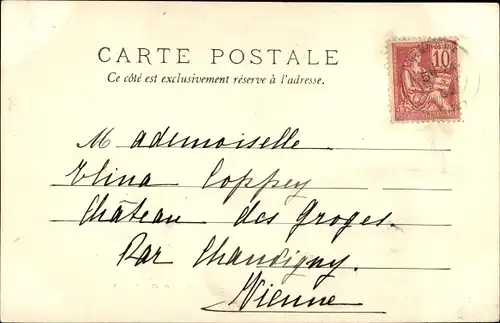 CARTE POSTALE
Ce côté est exclusivement réservé à l'adresse.
10
Mademoiselle
Elina Coppey
Château des Groges.
Par Chauvigny.
Vienne